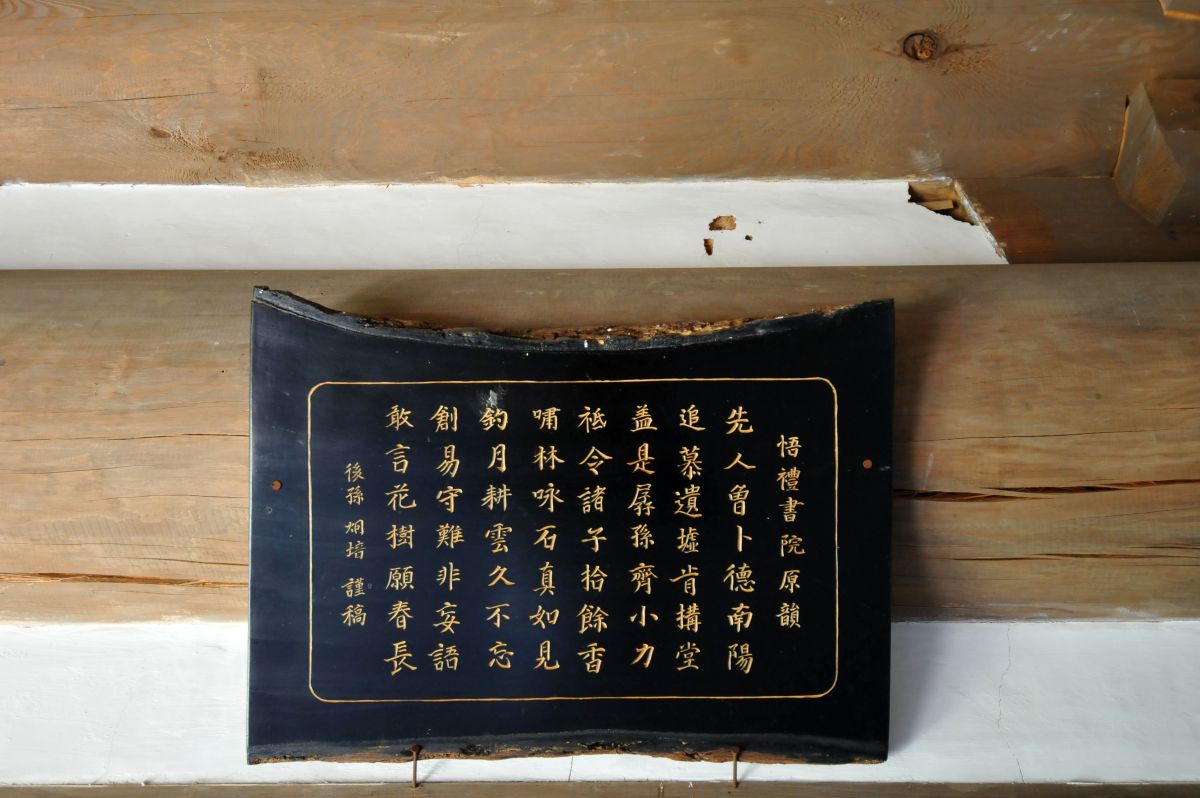 悟禮書院原韻
先人曾卜德南陽
追慕遺墟肯搆堂
盖是孱孫齊小力
祗令諸子拾餘香
嘯林咏石真如見
釣月耕雲久不忘
創易守難非妄語
敢言花樹願春長
後孫 炯培 謹稿